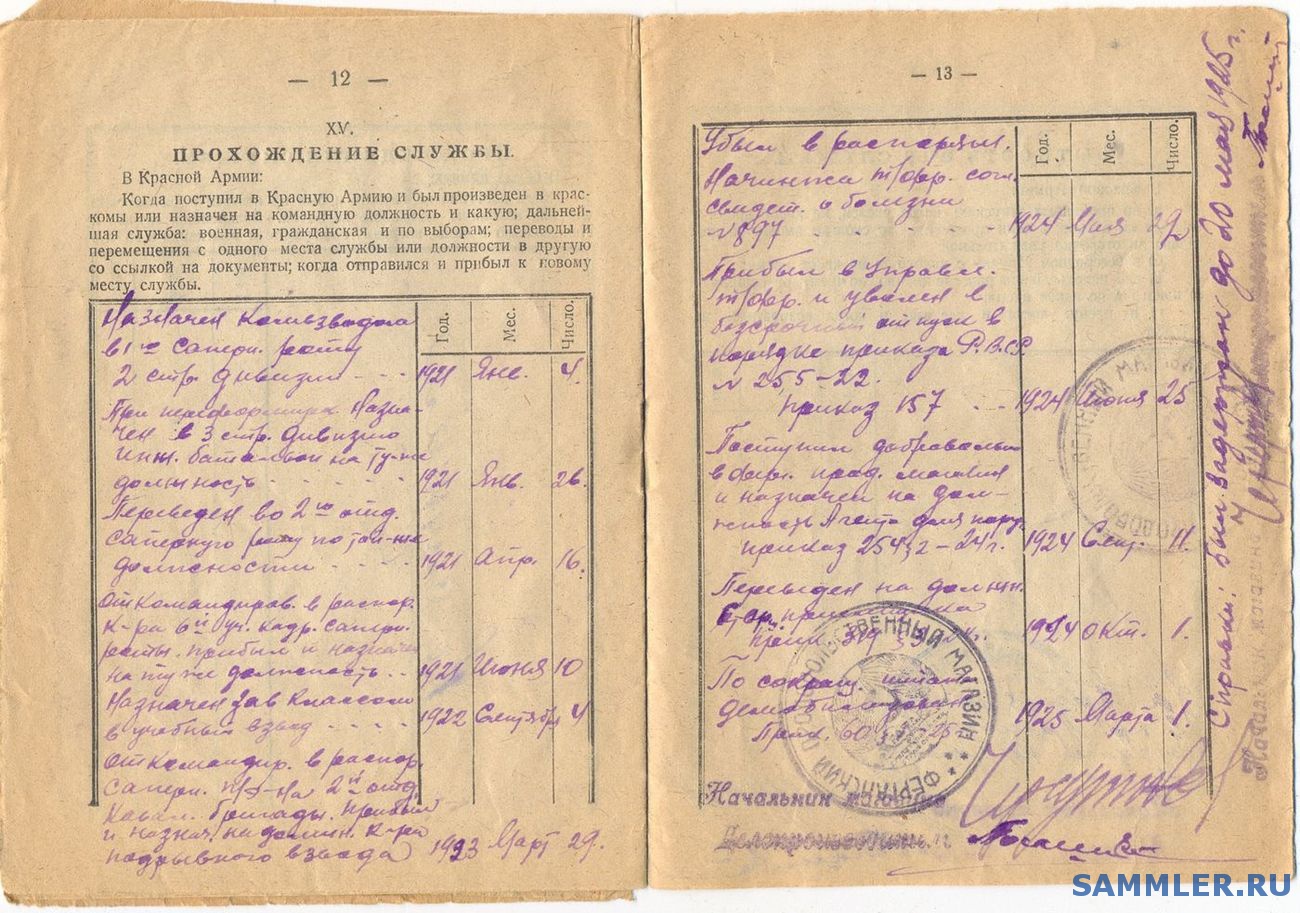 — 12 —
XV.
ПРОХОЖДЕНИЕ СЛУЖБЫ.
В Красной Армии:
Когда поступил в Красную Армию и был произведен в крас-
комы или назначен на командную должность и какую; дальней-
шая служба: военная, гражданская и по выборам; переводы и
перемещения с одного места службы или должности в другую
со ссылкой на документы; когда отправился и прибыл к новому
месту службы.
Год. Мес. Число.
Назначен Комвзвода
в 1ю саперн. роту
2 стр. дивизии 1921 Янв. 4.
При переформир. назна-
чен в 3 стр. дивизию
инж. баталион на ту-же
должность 1921 Янв. 26.
Переведен во 2ю отд.
саперную роту по той-же
должности 1921 Апр. 16.
Откомандиров. в распор.
к-ра 6й уч. кадр. саперн.
роты. прибыл и назначен
на ту же должность 1921 Июня 10
Назначен Зав Классом
в учебный взвод 1922 Сентябр 4
Откомандир. в распор.
Саперн. п/э-на 2й отд.
Кавал. бригады. Прибыл
и назнач. на должн. к-ра
подрывного взвода 1923 Март 29.
— 13 —
Год. Мес. Число.
Убыл в распоряж.
Начинжа т/фр. согл.
свидет. о болезни
№ 897 1924 Мая 29
Прибыл в Управл.
т/фр. и уволен в
безсрочный отпуск в
порядке приказа Р.В.С.Р.
№ 255-22.
приказ 157 1924 Июня 25
Поступил добровольно
в фер. прод. магазин
и назначен на дол-
жность Агента для пору.
приказ 254 § 2-24 г. 1924 Сент. 11.
Переведен на должн.
1924 окт. 1.
По сокращ. штата
демобилизован
Прик. 60 1925 Марта 1.
ФЕРГАНСКИЙ ПРОДОВОЛЬСТВЕННЫЙ МАГАЗИН
Начальник магазина
Делопроизводитель
Справка: был задержан до 20 мая 1925 г.
Начальник магазина
SAMMLER.RU